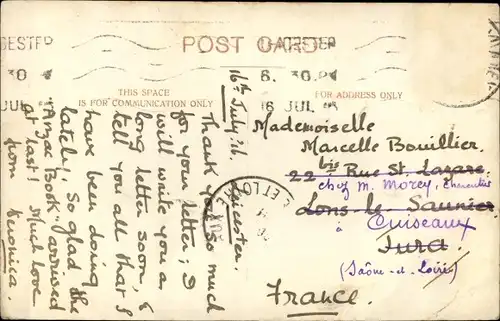 POST CARD
THIS SPACE
IS FOR COMMUNICATION ONLY
FOR ADDRESS ONLY
6. 30 PM
16 JUL
16th July 26. Leicester.
Thank you so much
for your letter; I
will write you a
long letter soon, &
tell you all that I
have been doing
lately! So glad the
"Anzac Book" arrived
at last! Much love
from Veronica.
Mademoiselle
Marcelle Bouillier.
22 bis Rue St. Lazare.
chez M. Morey, Charcutier
Lons le Saunier
à Cuiseaux
Jura
(Saône-et-Loire)
France.
ET LOIRE